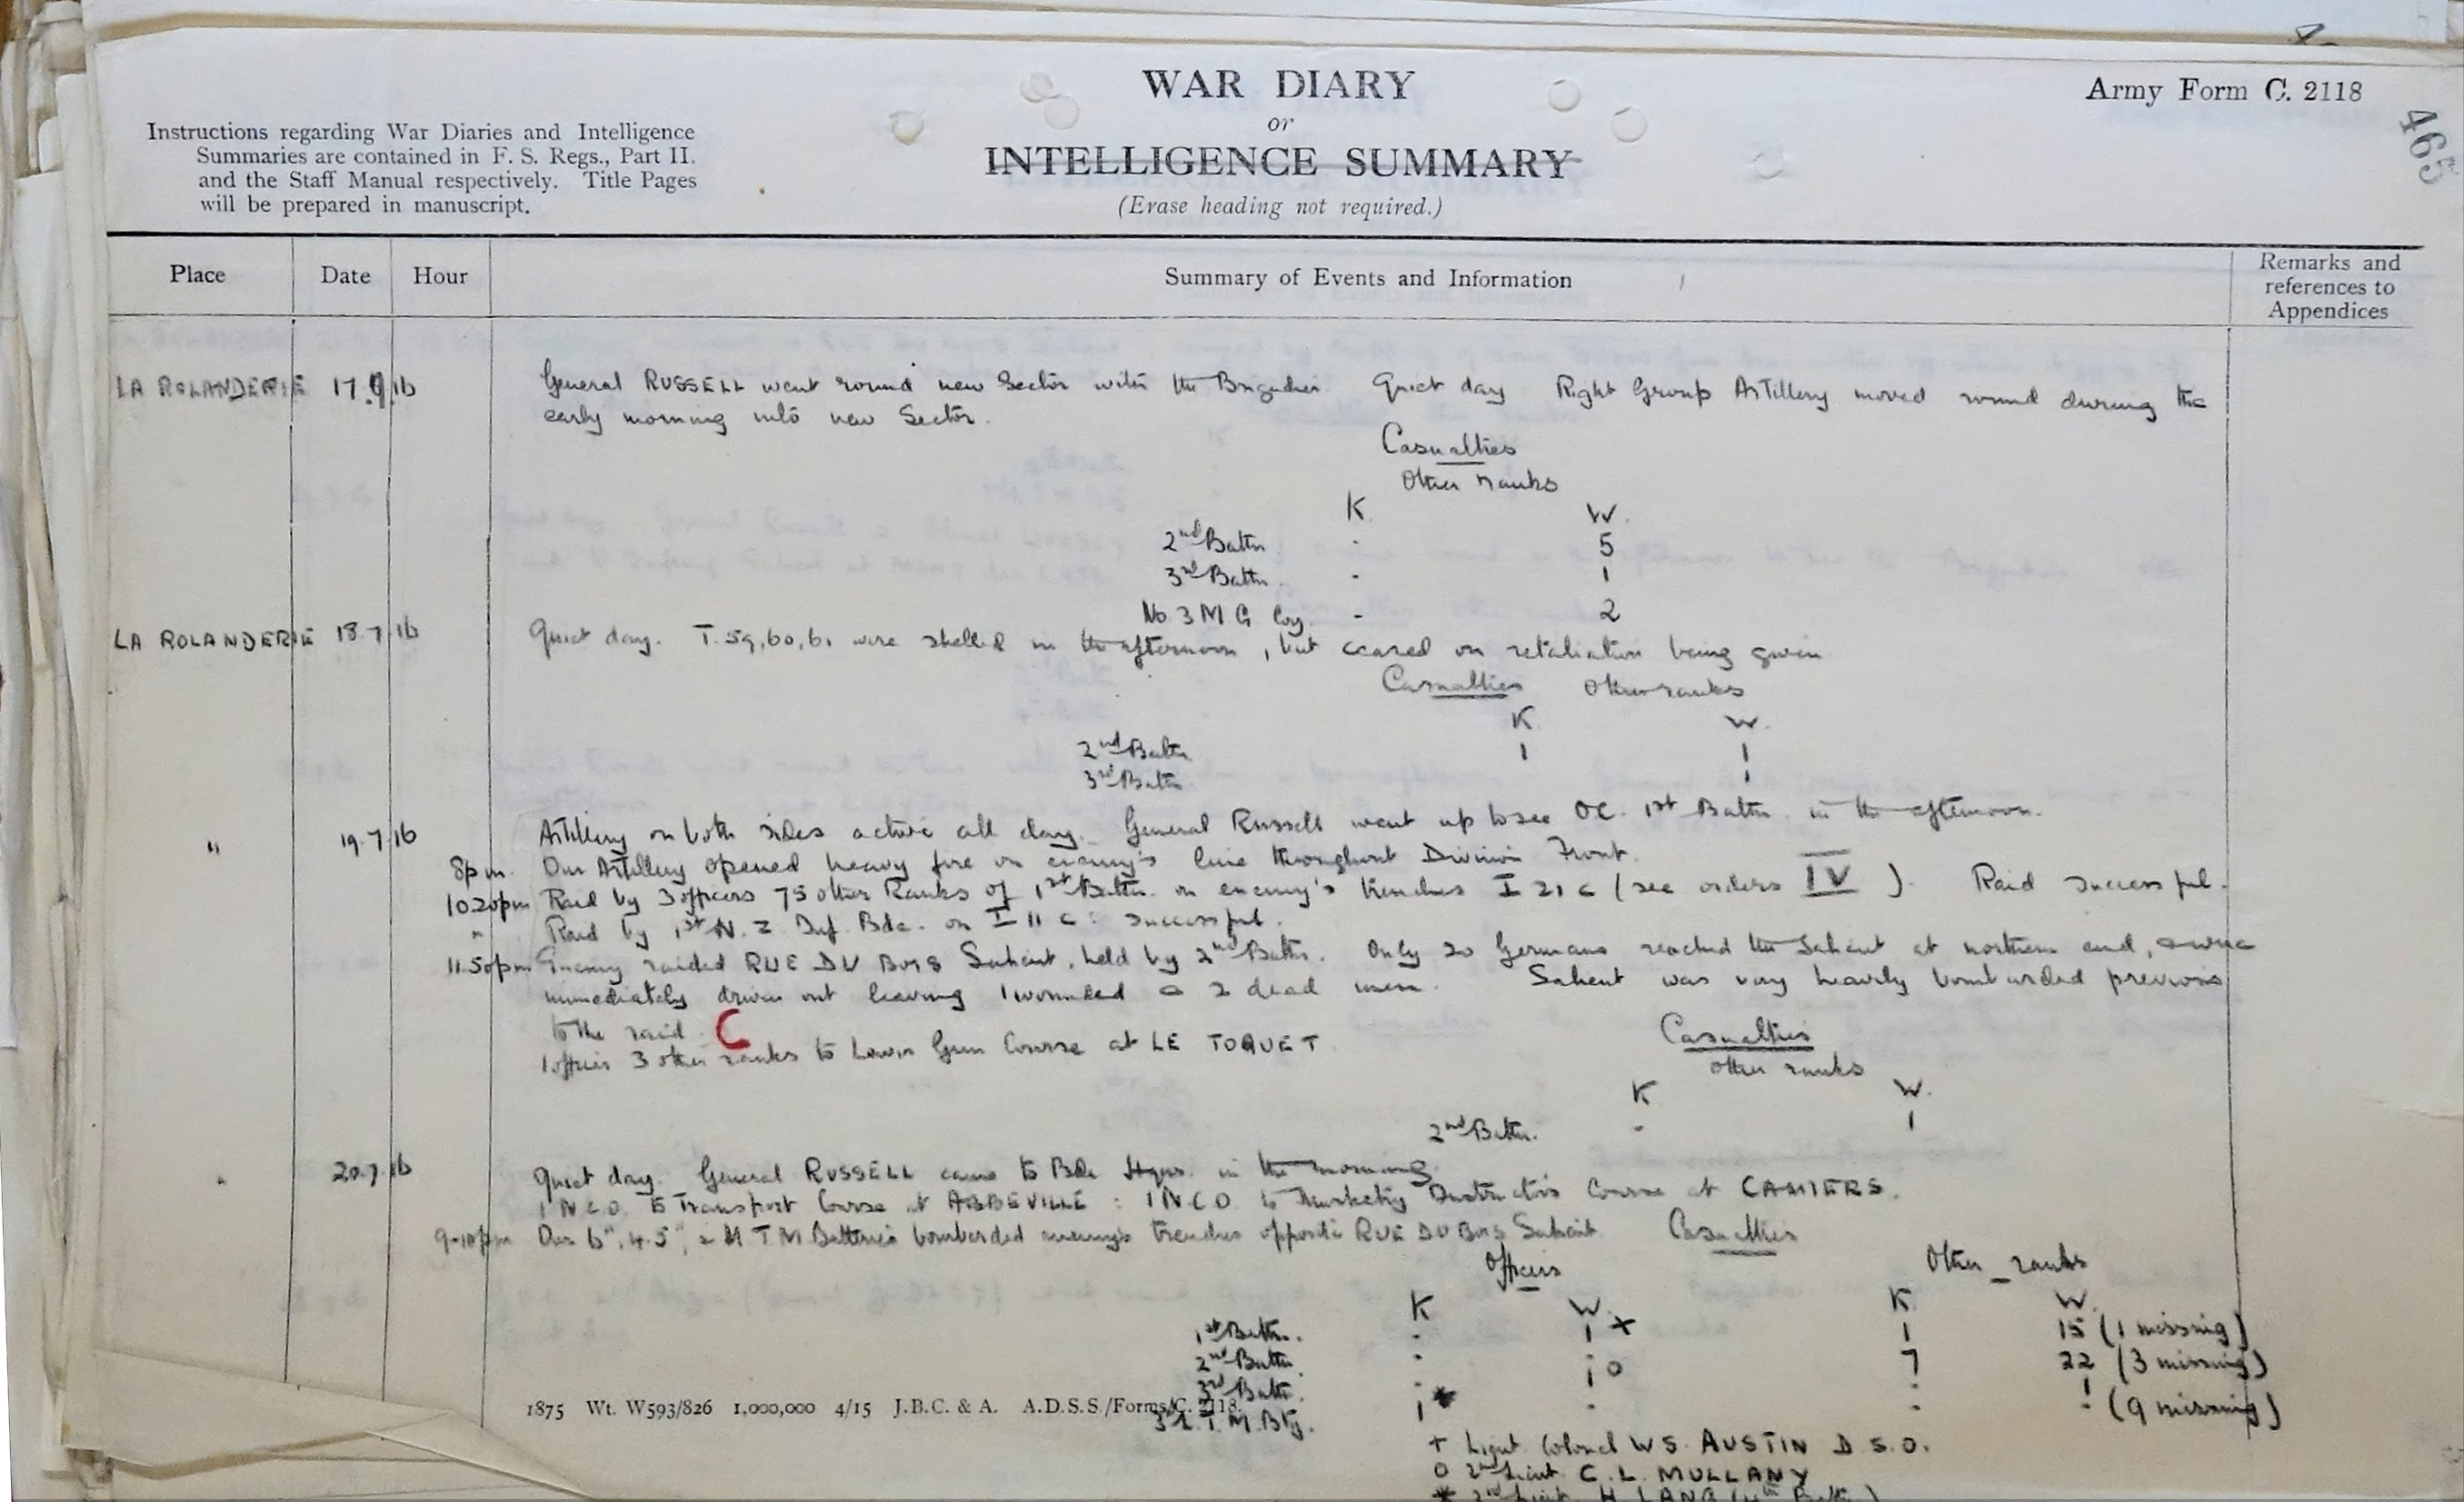 WAR DIARY
or
INTELLIGENCE SUMMARY
(Erase heading not required.)
Army Form C. 2118
465
Instructions regarding War Diaries and Intelligence
Summaries are contained in F. S. Regs., Part II.
and the Staff Manual respectively. Title Pages
will be prepared in manuscript.
Place Date Hour Summary of Events and Information Remarks and references to Appendices
LA ROLANDERIE 17.9.16 General RUSSELL went round new Sector with the Brigadier. Quiet day Right Group Artillery moved round during the
early morning into new Sector.
Casualties
Other ranks
K W.
2nd Battn - 5
3rd Battn. - 1
No 3 M G Coy. - 2
LA ROLANDERIE 18.7.16 Quiet day. T.59,60,61 were shelled in the afternoon, but ceased on retaliation being given
Casualties Other ranks
K W.
2nd Battn 1 1
3rd Battn 1
" 19.7.16 Artillery on both sides active all day. General Russell went up to see OC. 1st Battn. in the afternoon.
8pm. Our Artillery opened heavy fire on enemy's line throughout Division Front.
10.20pm Raid by 3 officers 75 other Ranks of 1st Battn. on enemy's trenches I 21 c (see orders IV). Raid successful.
" Raid by 1st N. Z. Inf. Bde. on I 11 c: successful.
11.50pm Enemy raided RUE DU BOIS Salient, held by 2nd Battn. Only 20 Germans reached the Salient at northern end, & were
immediately driven out leaving 1 wounded & 2 dead men. Salient was very heavily bombarded previous
to the raid. C
1 officer 3 other ranks to Lewis Gun Course at LE TOQUET
Casualties
Other ranks
K W.
2nd Battn. - 1
" 20.7.16 Quiet day. General RUSSELL came to Bde Hqrs. in the morning.
1 N.C.O. to Transport Course at ABBEVILLE: 1 N.C.O. to Musketry Instructors Course at CAMIERS.
9-10pm Our 6", 4.5", & M T M Batteries bombarded enemy's trenches opposite RUE DU BOIS Salient. Casualties
Officers Other ranks
K W. K W.
1st Battn. - 1 + 1 15 (1 missing)
2nd Battn - 1 o 7 22 (3 missing)
3rd Battn. - - - 1
3 L. T. M. Bty. 1 * - - - (9 missing)
1875 Wt. W593/826 1,000,000 4/15 J.B.C. & A. A.D.S.S./Forms/C. 2118.
+ Lieut Colonel W.S. AUSTIN D.S.O.
o 2nd Lieut. C.L. MULLANY
* 2nd Lieut. H. LANG (4th Battn.)